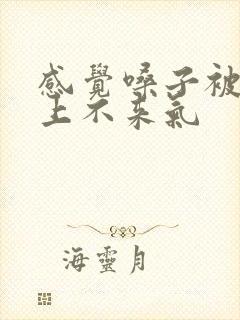 感覺嗓子被
上不来氣
海靈月